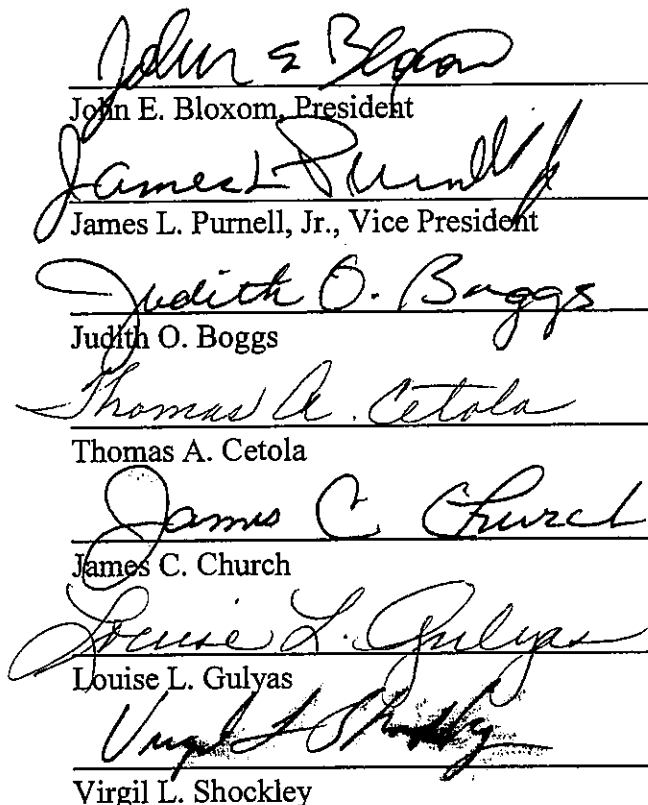 John E Bloxom
John E. Bloxom, President
James L Purnell Jr
James L. Purnell, Jr., Vice President
Judith O. Boggs
Judith O. Boggs
Thomas A. Cetola
Thomas A. Cetola
James C Church
James C. Church
Louise L. Gulyas
Louise L. Gulyas
Virgil L Shockley
Virgil L. Shockley